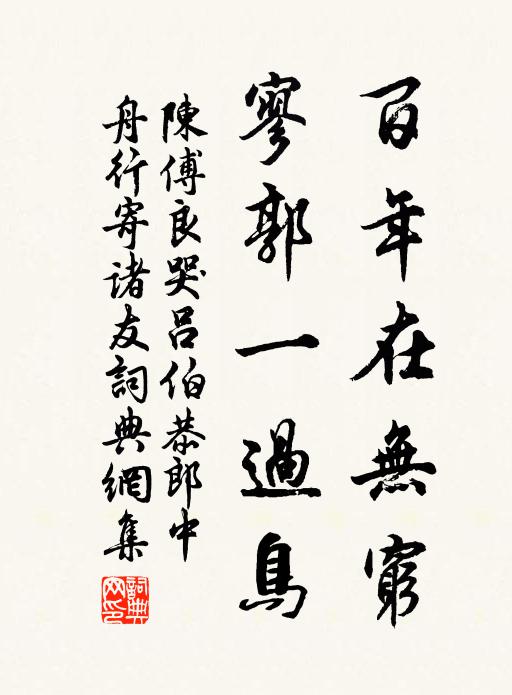 百年在無窮
寥郭一過鳥
陳傅良哭呂伯恭郎中
舟行寄诸友詞典網集
詞典網印